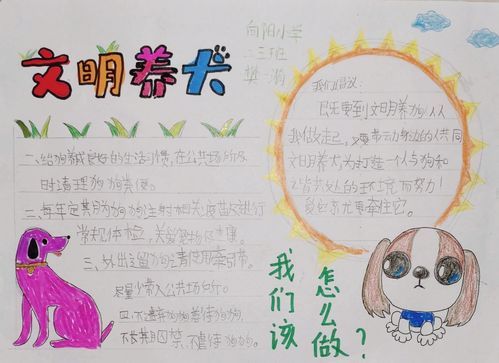 文明养犬
向阳小学
二三班
樊
一、给狗养成良好的生活习惯,在公共场所及
时清理狗狗粪便。
二、每年定期为狗狗注射相关疫苗及进行
常规体检,关爱宠物健康。
三、外出遛狗时请使用牵引带。
尽量少带入公共场所。
四、不遗弃狗狗善待狗狗,
不长期囚禁,不虐待狗狗。
我们倡议:
要到文明养狗从
我做起,还要带动身边的人共同
文明养犬为打造一个人与狗和
谐共处的环境而努力!
爱它就要牵住它。
我们该
怎么做?